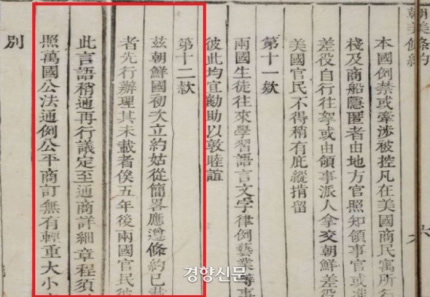 朝美條約
六
本國例禁或牽涉被控凡在美國商民寓所行
棧及商船隱匿者由地方官照知領事官或准
差役自行往拏或由領事派人拿交朝鮮差役
美國官民不得稍有庇縱掯留
第十一欵
兩國生徒往來學習語言文字律例藝業等事
彼此均宜勷助以敦睦誼
第十二欵
玆朝鮮國初次立約姑從簡畧應遵條約已載
者先行辦理其未載者俟五年後兩國官民彼
此言語稍通再行議定至通商詳細章程須
照萬國公法通例公平商訂無有輕重大小
別
경향신문